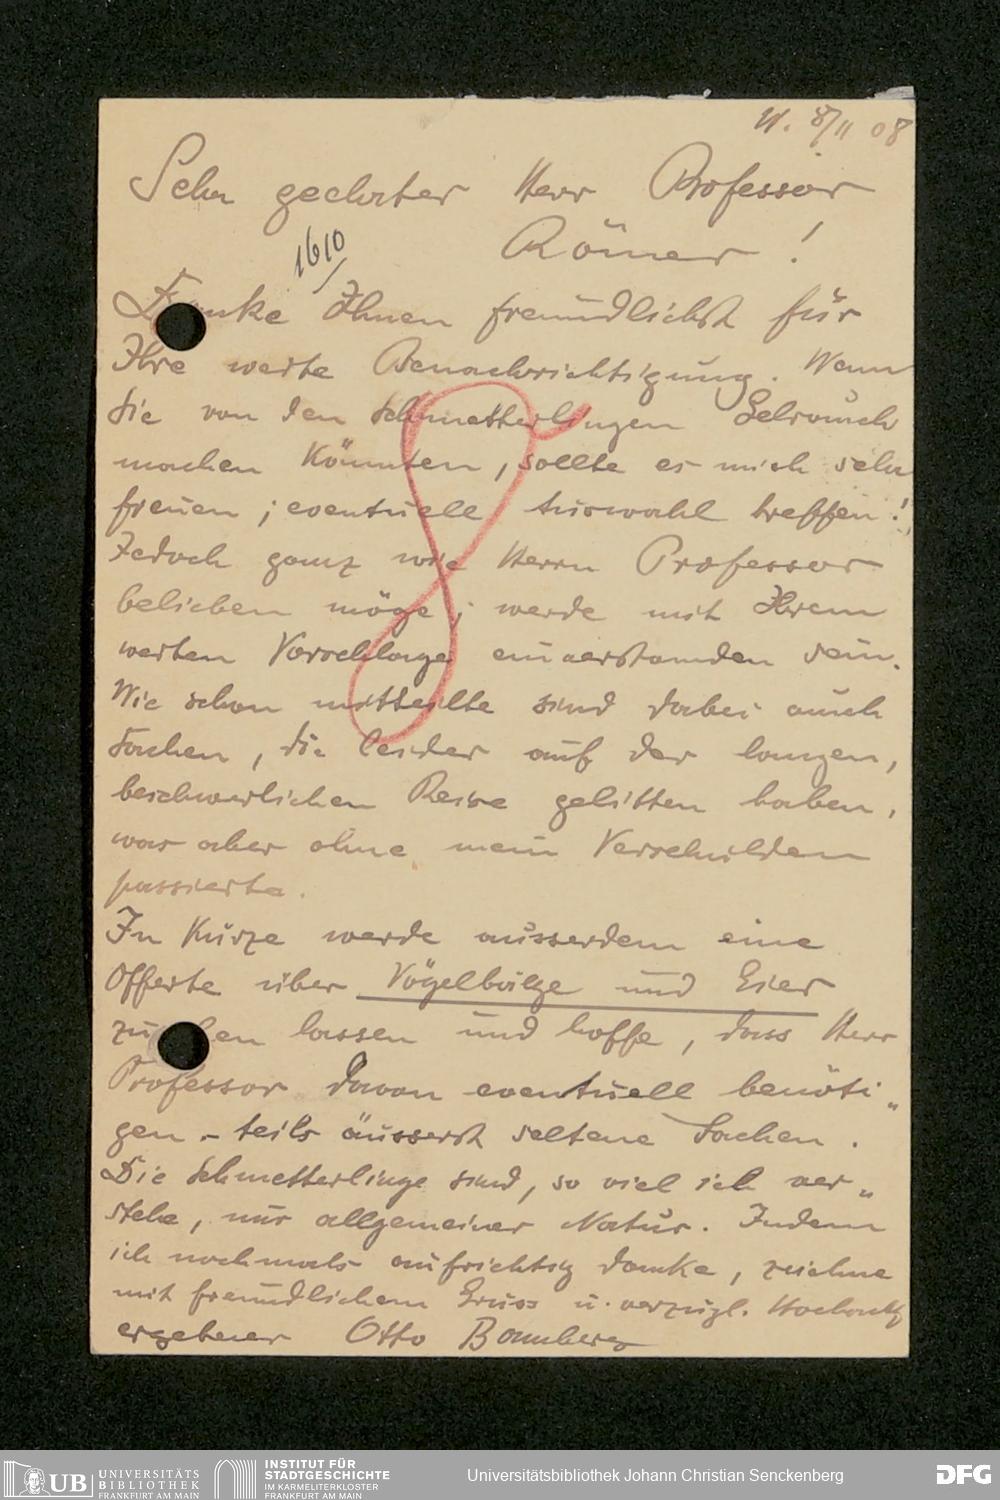 W. 8/11 08
Sehr geehrter Herr Professor
Römer!
1610
Danke Ihnen freundlichst für
Ihre werte Benachrichtigung. Wenn
Sie von den Schmetterlingen Gebrauch
machen könnten, sollte es mich sehr
freuen; eventuelle Auswahl treffen!
Jedoch ganz wie Herrn Professor
belieben möge; werde mit Ihrem
werten Vorschlage einverstanden sein.
Wie schon mitteilte sind dabei auch
Sachen, die leider auf der langen,
beschwerlichen Reise gelitten haben,
was aber ohne mein Verschulden
passierte.
In Kürze werde ausserdem eine
Offerte über Vögelbälge und Eier
zugehen lassen und hoffe, dass Herr
Professor davon eventuell benöti„
gen - teils äusserst seltene Sachen.
Die Schmetterlinge sind, so viel ich ver„
stehe, nur allgemeiner Natur. Indem
ich nochmals aufrichtig danke, zeichne
mit freundlichem Gruss u. vorzügl. Hochacht
ergebener Otto Bamberg
UB UNIVERSITÄTS
BIBLIOTHEK
FRANKFURT AM MAIN
INSTITUT FÜR
STADTGESCHICHTE
IM KARMELITERKLOSTER
FRANKFURT AM MAIN
Universitätsbibliothek Johann Christian Senckenberg
DFG